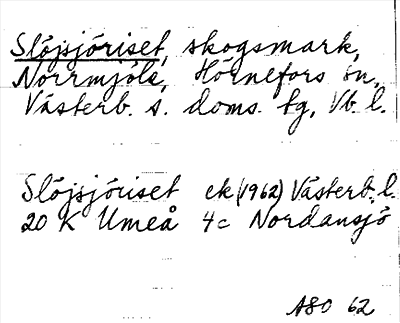 Slöjsjöriset, skogsmark,
Norrmjöle, Hörnefors sn,
Västerb. s. doms. tg, Vb. l.
Slöjsjöriset ek (1962) Västerb. l.
20 K Umeå 4c Nordansjö
ASO 62